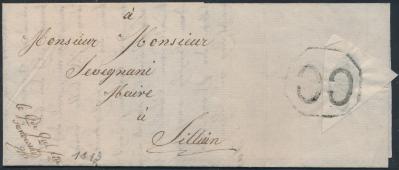 à
Monsieur Monsieur
Sevignani
Maire
à
Sillian
CC
1813